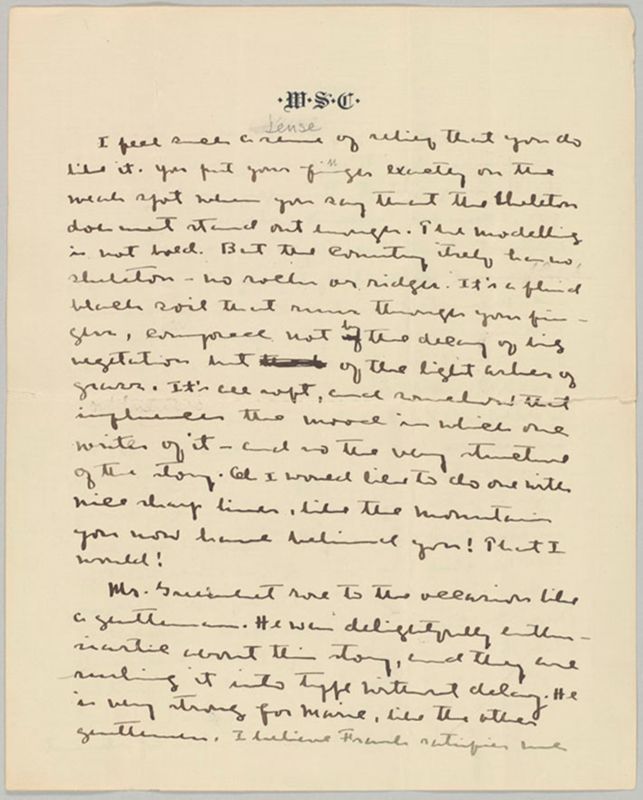 ·W·S·C·
sense
I feel such a sense of relief that you do
like it. You put your finger exactly on the
weak spot when you say that the skeleton
does not stand out enough. The modelling
is not bold. But the country itself has no
skeleton – no rocks or ridges. It's a fluid
black soil that runs through your fin-
gers, composed not by the decay of big
vegetation but of the light ashes of
grass. It's all soft, and somehow that
influences the mood in which one
writes of it – and so the very structure
of the story. Oh I would like to do one with
nice sharp lines, like the mountains
you now have behind you! That I
would!
Mr. Greenslet rose to the occasion like
a gentleman. He was delightfully enthu-
siastic about this story, and they are
rushing it into type without delay. He
is very strong for Marie, like the other
gentlemen. I believe Frank satisfies me